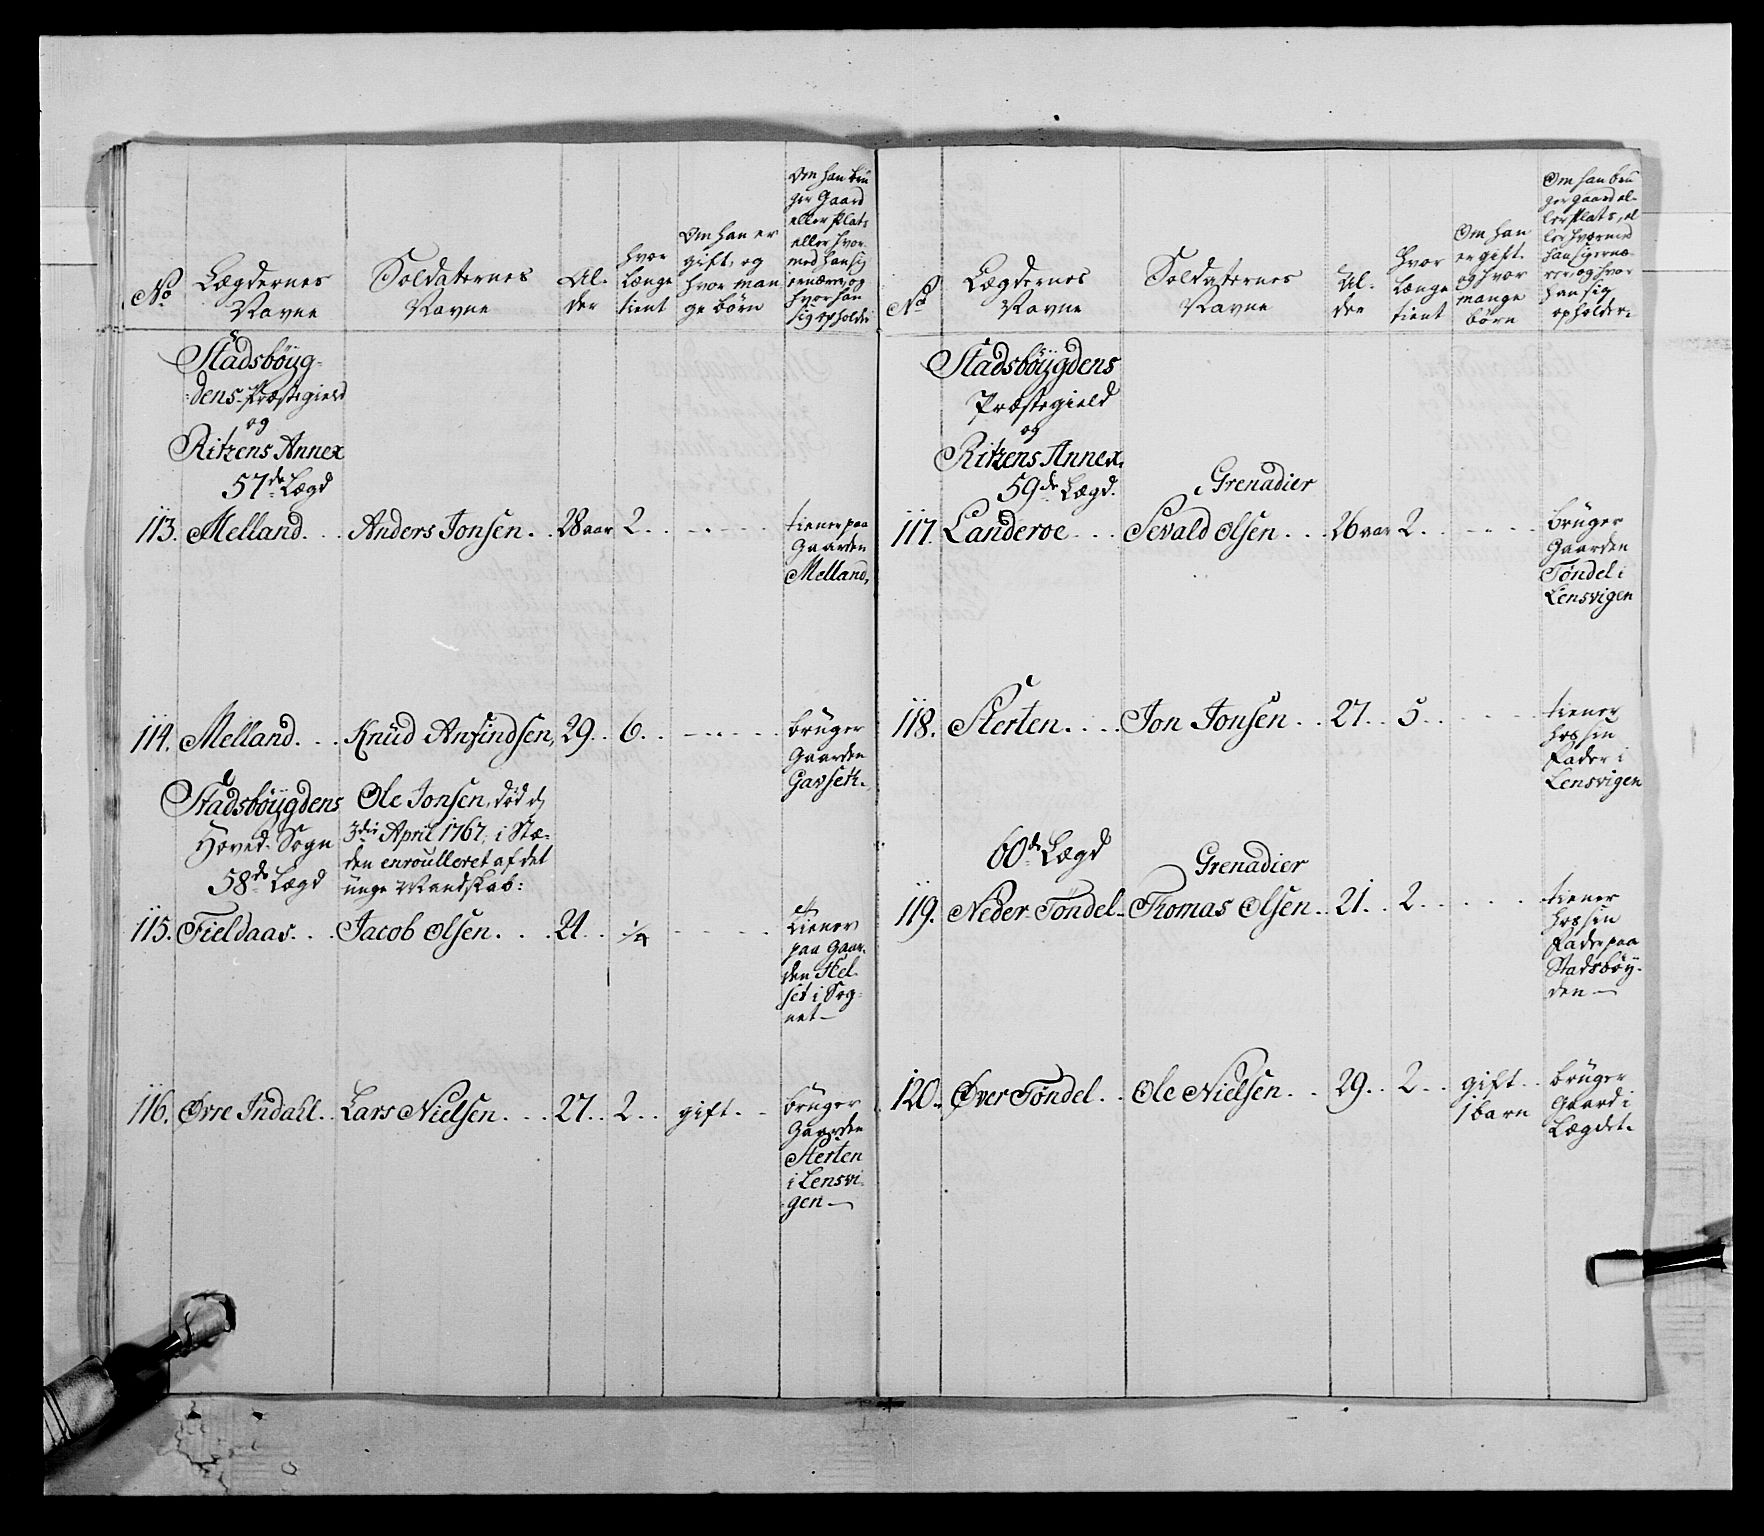 No
Lægdernes
Navne
Soldaternes
Navne
Al-
der
hvor
længe
tient
Om han er
gift, og
hvor man
ge børn
Om han bru
ger Gaard
eller Plats
eller hvor-
med han sig
ernærer, og
hvor han
sig opholder
Stadsböyg-
dens Præstegield
og
Ritzens Annex
57de Lægd
113. Melland. . . Anders Jonsen. . 28 aar 2. . - . - . . . tiener paa
Gaarden
Melland,
114. Melland. . . Knüd Anfindsen, 29. . 6. . - . - . . . brüger
Gaarden
Gavsek.
Stadsböygdens
Hoved-Sogn
58de Lægd
Ole Jonsen, död d
3die April 1767, i Stæ-
den enroulleret af det
ünge Mandskab:
115. Fieldaas. . . Jacob Olsen. . . 21. . 1/4 . . . . . tiener
paa Gaar-
den Hel-
set i Sog-
net -
116. Øvre Indahl. . Lars Nielsen. . . 27. . 2. . gift. . brüger
Gaarden
Sterten
i Lensvi-
gen -
No
Lægdernes
Navne
Soldaternes
Navne
Al-
der
hvor
længe
tient
Om han
er gift.
og hvor
mange
børn
Om han brü
ger gaard el-
ler Plats, el
ler hvormed
han sig ernæ-
rer, og hvor
han sig
opholder.
Stadsböygdens
Præstegield
og
Ritzens Annex.
59de Lægd.
Grenadier
117. Landeroe. . . Sevald Olsen. . . 26 aar 2. . . . . . brüger
Gaarden
Tøndel i
Lensvigen
118. Sterten. . . . Jon Jonsen. . 27. . 5. . . . . . tiener
hos sin
Fader i
Lensvigen
60de Lægd
Grenadier
119. Neder-Tøndel. . Thomas Olsen. . 21. . 2. . . . . . tiener
hos sin
Fader paa
Stadsböy-
den -
120. Øver Tøndel. . Ole Nielsen. . . 29. . 2. . gift. . brüger
1 barn
Gaard i
Lægdet.